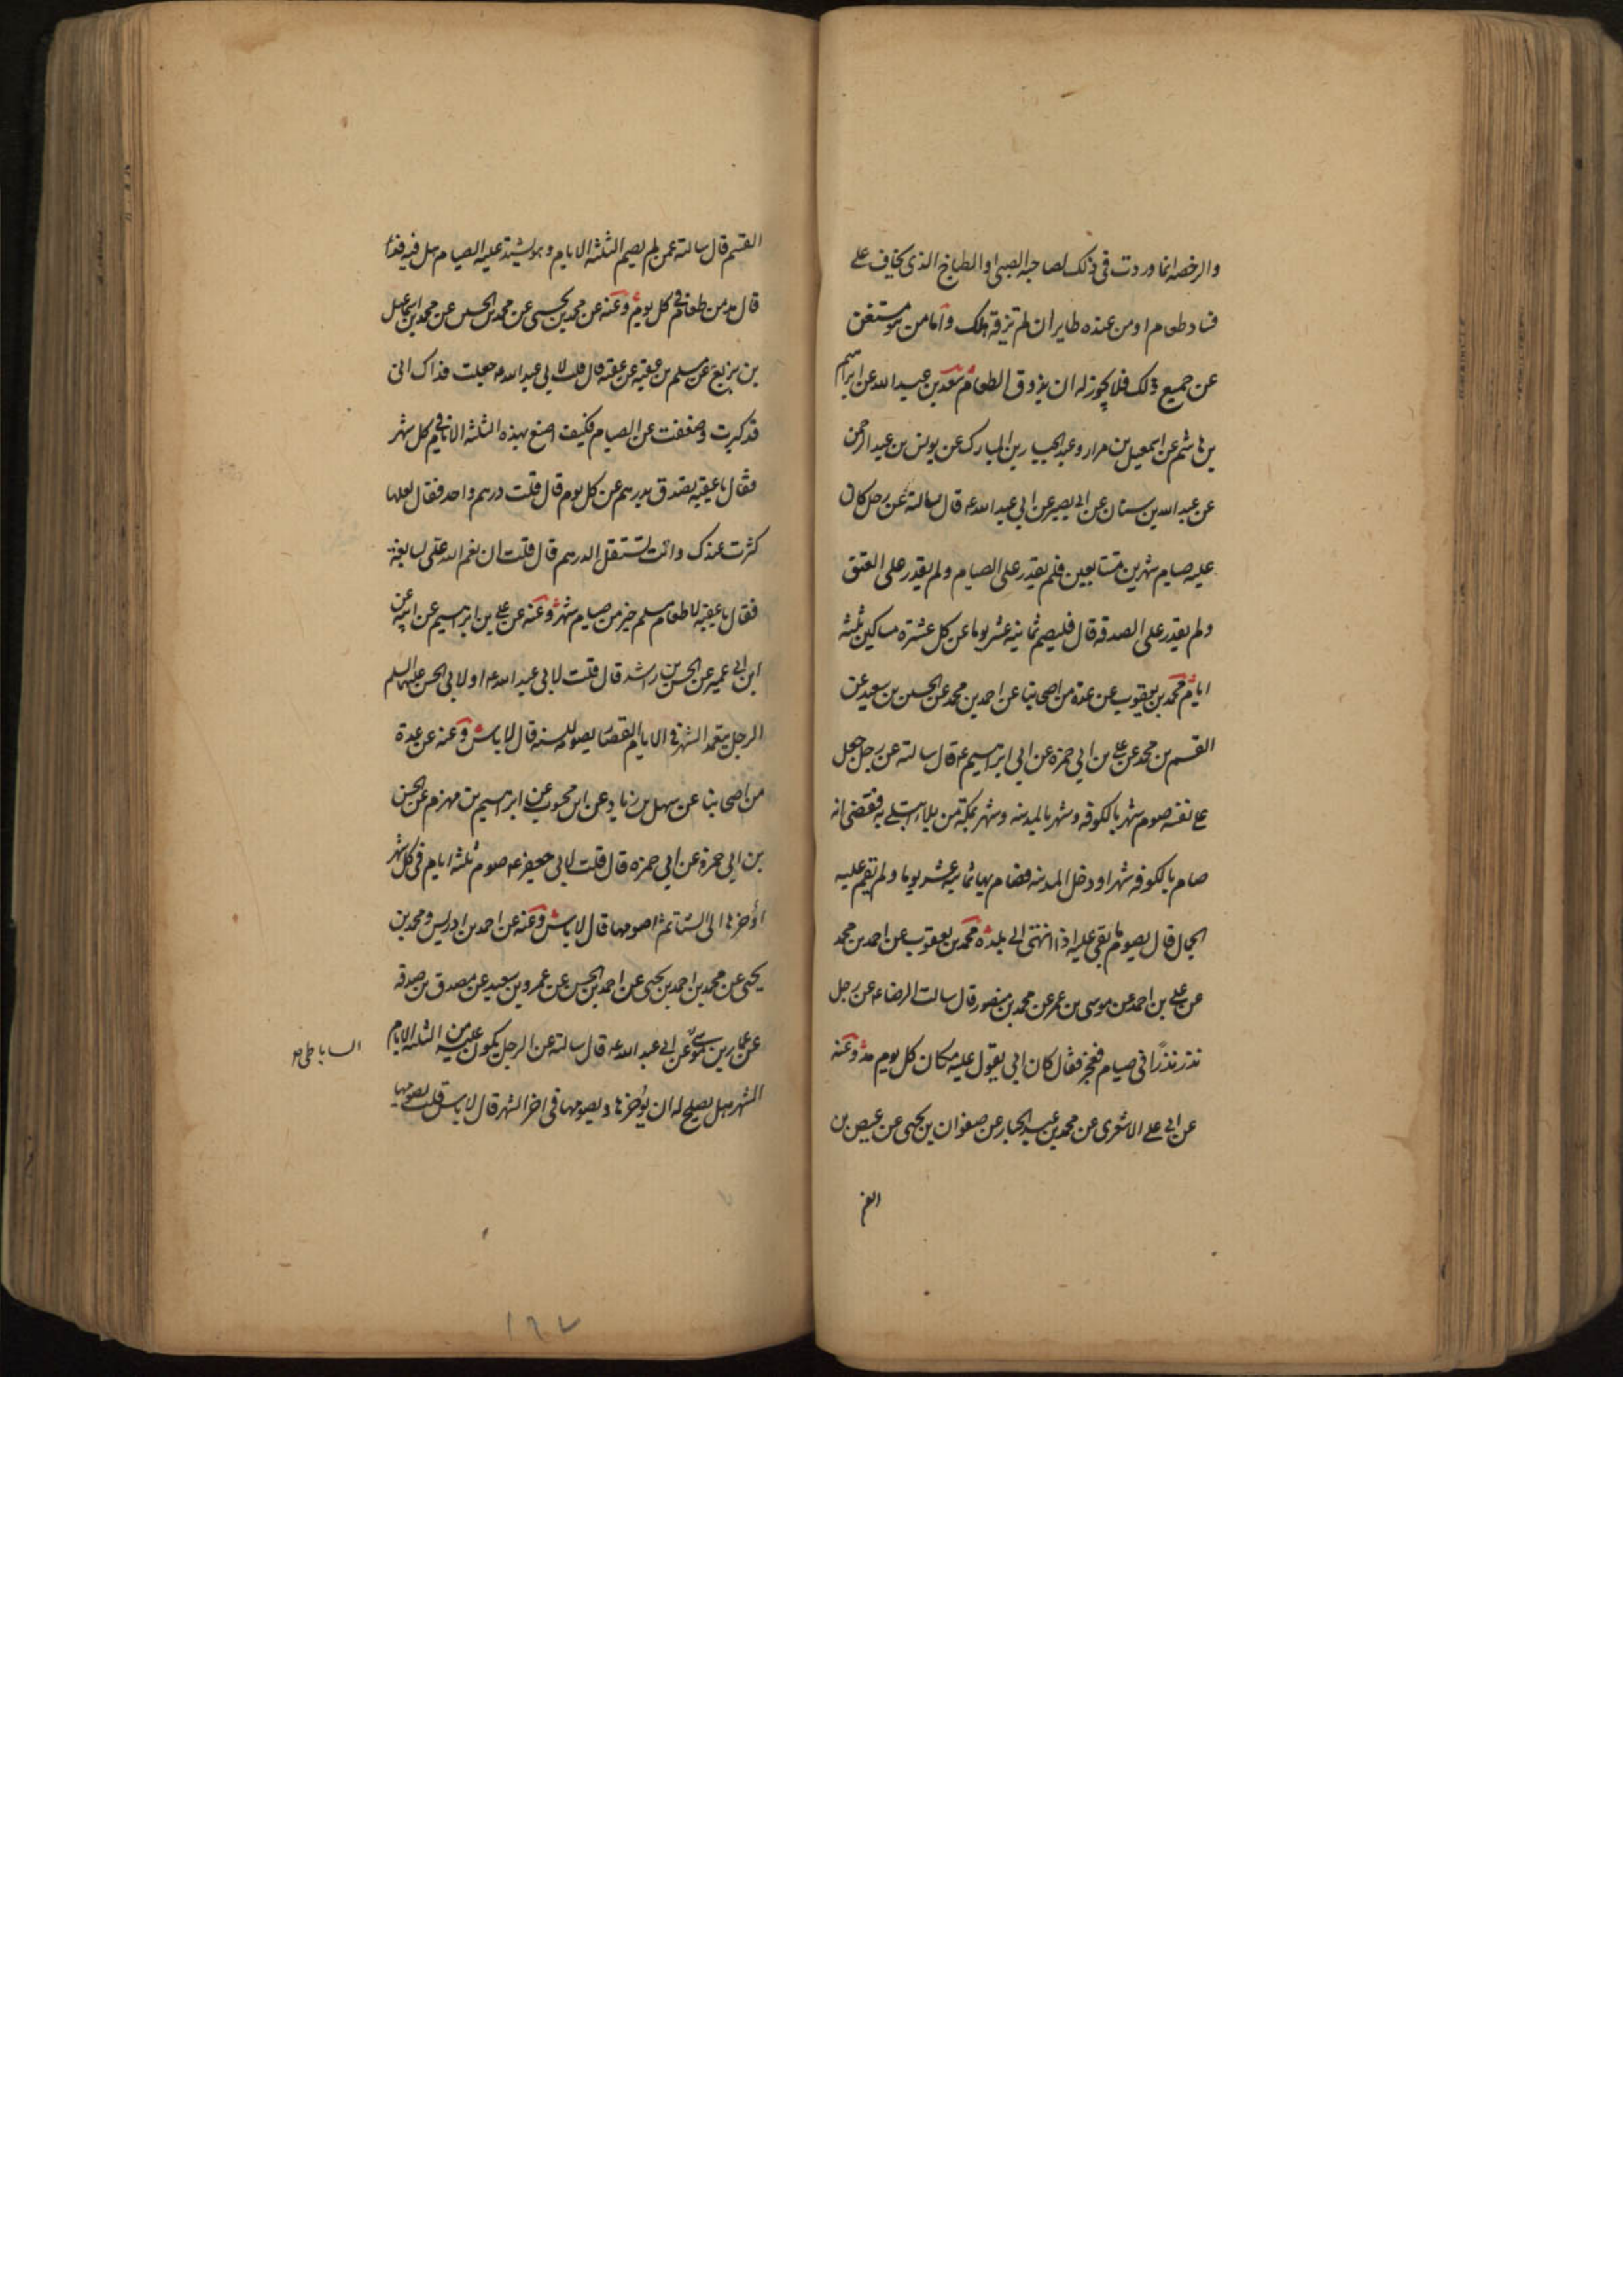 والرخصه انما وردت في ذلك لصاحبه الصبي او الطباخ الذي يخاف على
فساد طعام او من عنده طاير ان لم يزقه هلك واما من هو مستغن
عن جميع ذلك فلا يجوز له ان يذوق الطعام سعد بن عبد الله عن ابراهيم
بن هاشم عن اسمعيل بن مرار وعبد الجبار بن المبارك عن يونس بن عبد الرحمن
عن عبد الله بن سنان عن ابي بصير عن ابي عبد الله ع قال سالته عن رجل كان
عليه صيام شهرين متتابعين فلم يقدر على الصيام ولم يقدر على العتق
ولم يقدر على الصدقه قال فليصم ثمانيه عشر يوما عن كل عشرة مساكين ثلثه
ايام محمد بن يعقوب عن عدة من اصحابنا عن احمد بن محمد عن الحسين بن سعيد عن
القسم بن محمد عن علي بن ابي حمزه عن ابي ابراهيم ع قال سالته عن رجل جعل
على نفسه صوم شهر بالكوفه وشهر بالمدينه وشهر بمكة من بلاء ابتلى به فقضى انه
صام بالكوفه شهرا ودخل المدينه فصام بها ثمانيه عشر يوما ولم يقم عليه
الجمال قال يصوم ما بقي عليه اذا انتهى الى بلده محمد بن يعقوب عن احمد بن محمد
عن علي بن احمد عن موسى بن عمر عن محمد بن منصور قال سالت الرضا ع عن رجل
نذر نذرًا في صيام فعجز فقال كان ابي يقول عليه مكان كل يوم مد وعنه
عن ابي على الاشعري عن محمد بن عبد الجبار عن صفوان بن يحيى عن عيص بن
القسم
القسم قال سالته عمن لم يصم الثلثه الايام وهو يشتد عليه الصيام هل فيه فداء
قال مد من طعام في كل يوم وعنه عن محمد بن يحيى عن محمد بن الحسين عن محمد بن اسماعيل
بن بزيع عن مسلم بن عقبه عن عقبه قال قلت لابي عبد الله ع جعلت فداك اني
قد كبرت وضعفت عن الصيام فكيف اصنع بهذه الثلثه الايام في كل شهر
فقال يا عقبه تصدق بدرهم عن كل يوم قال قلت درهم واحد فقال لعلها
كثرت عندك وانت تستقل الدرهم قال قلت ان نعم الله على سابغه
فقال يا عقبه لاطعام مسلم خير من صيام شهر وعنه عن علي بن ابراهيم عن ابيه عن
ابن ابي عمير عن الحسن بن راشد قال قلت لابي عبد الله ع او لابي الحسن عليهما السلم
الرجل يتعمد الشهر في الايام القصار يصومه للسنه قال لا باس وعنه عن عدة
من اصحابنا عن سهل بن زياد عن ابن محبوب عن ابراهيم بن مهزم عن الحسن
بن ابي حمزه عن ابي حمزه قال قلت لابي جعفر ع صوم ثلثه ايام في كل شهر
اؤخرها الى الشتا ثم اصومها قال لا باس وعنه عن احمد بن ادريس ومحمد بن
يحيى عن محمد بن احمد بن يحيى عن احمد بن الحسن عن عمرو بن سعيد عن مصدق بن صدقه
عن عمار بن موسى عن ابي عبد الله ع قال سالته عن الرجل يكون عليه من الثلثه الايام
الساباطي
الشهر هل يصلح له ان يؤخرها ويصومها في اخر الشهر قال لا باس قلت يصومها
١٦٧